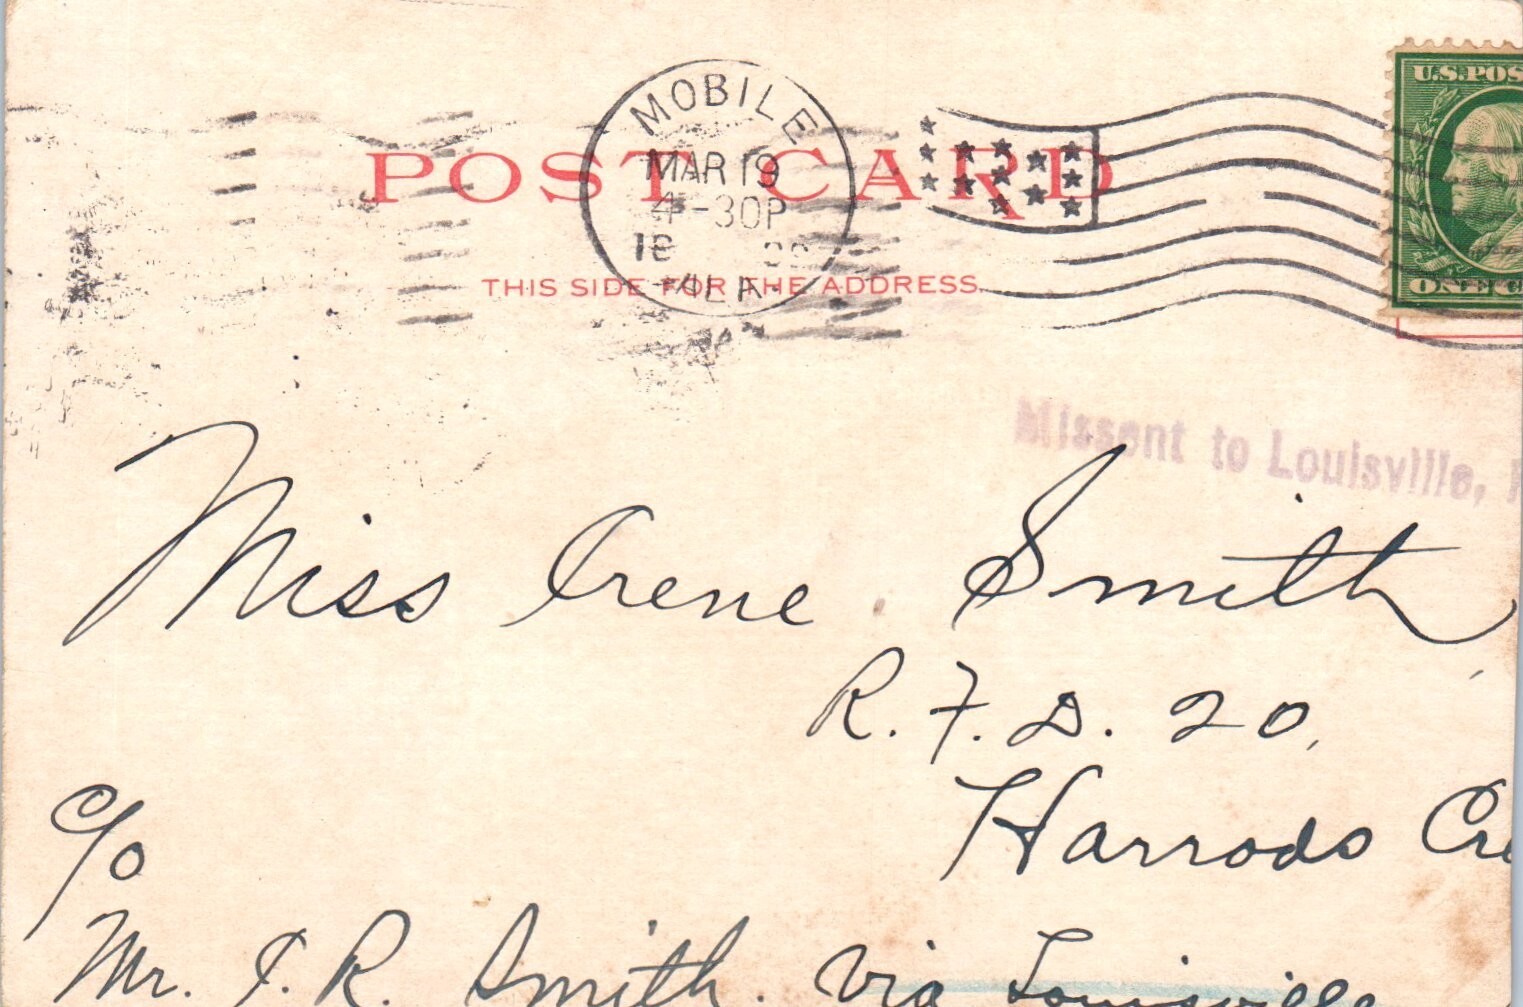 MOBILE
MAR 19
4-30P
ALA.
POST CARD
THIS SIDE FOR THE ADDRESS.
U.S. POS
ONE C
Missent to Louisville,
Miss Irene Smith
R. F. D. 20,
Harrods Cre
c/o
Mr. J. R. Smith. Via Louisville